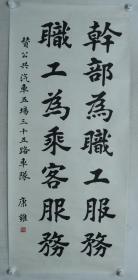 幹部為職工服務
職工為乘客服務
贊公共汽車五場三十五路車隊
康雍